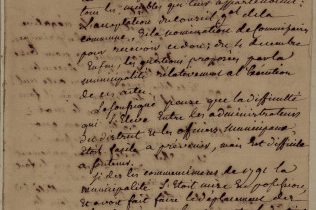 tous les meubles qui leur appartenoient:
L'acceptation du conseil gal de la
commune, & la nomination de Commissaires
pour recevoir ce don; du 4 decembre
Enfin, les questions proposées par la
municipalité relativement al'execution
de ces actes.
Le soussigné pense que la difficulté
qui s'eleve entre les administrateurs
du district et les officiers municipaux
étoit facile a prévenir, mais est difficile
a
Si dès les commencimens de 1791 la
municipalité s'étoit mise en possession,
et avoit fait faire le déplacement des